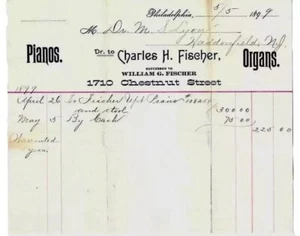 Philadelphia, 5/5 1899
M Dr. M. S. Lyon
Haddonfield, N.J.
Pianos. Dr. to Charles H. Fischer, Organs.
SUCCESSOR TO
WILLIAM G. FISCHER
1710 Chestnut Street
1899
April 26 To Fischer Upt Piano
and stool 300 00
May 5 By Cash 75 00
225 00
Warranted